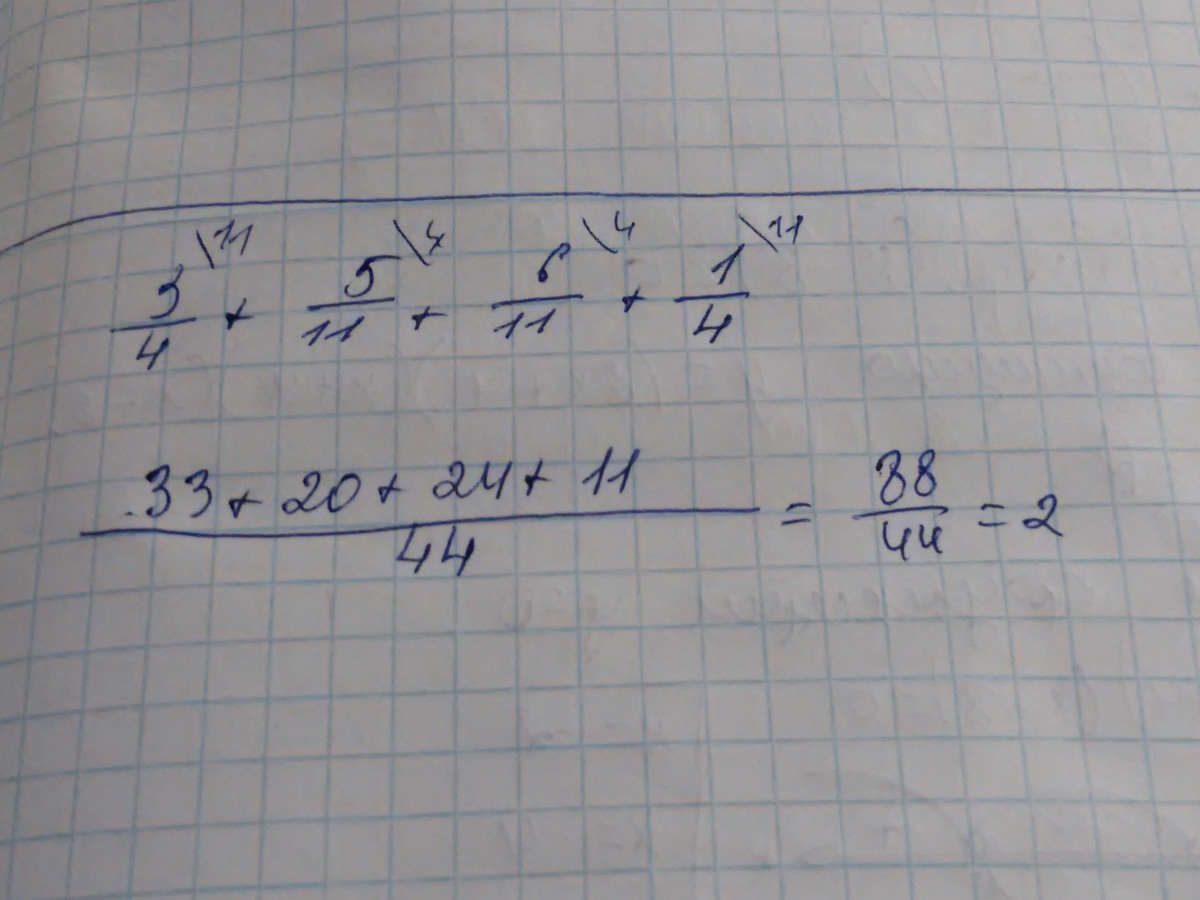 3/4 \11 + 5/11 \4 + 6/11 \4 + 1/4 \11
33 + 20 + 24 + 11 / 44 = 88/44 = 2